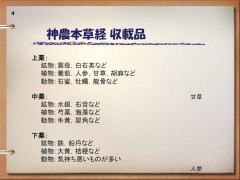 4
神農本草経 収載品
上薬:
鉱物: 雲母、白石英など
植物: 葡萄、人参、甘草、胡麻など
動物: 石蜜、牡蠣、龍骨など
甘草
中薬:
鉱物: 水銀、石膏など
植物: 芍薬、海藻など
動物: 牛黄、犀角など
下薬:
鉱物: 鉄、鉛丹など
植物: 大黄、桔梗など
動物: 気持ち悪いものが多い
人参